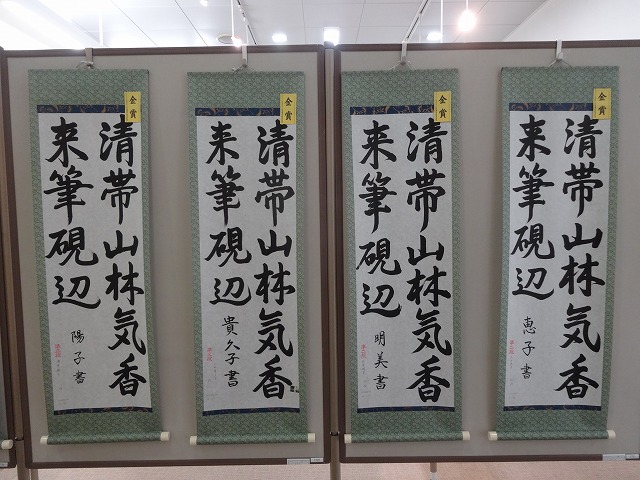 金賞
清帯山林気香
来筆硯辺
陽子書
金賞
清帯山林気香
来筆硯辺
貴久子書
金賞
清帯山林気香
来筆硯辺
明美書
金賞
清帯山林気香
来筆硯辺
恵子書